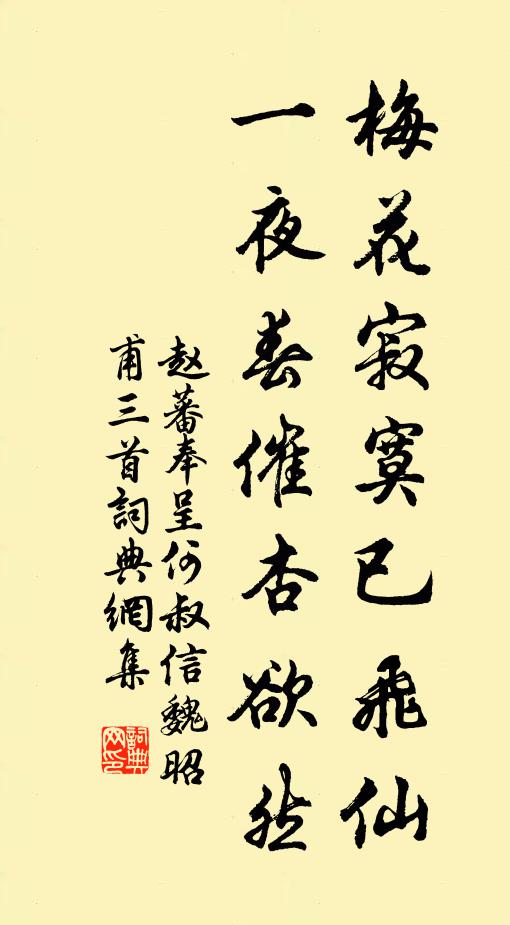 梅花寂寞已飛仙
一夜春催杏欲然
赵蕃奉呈何叔信魏昭
甫三首詞典網集
詞典網印